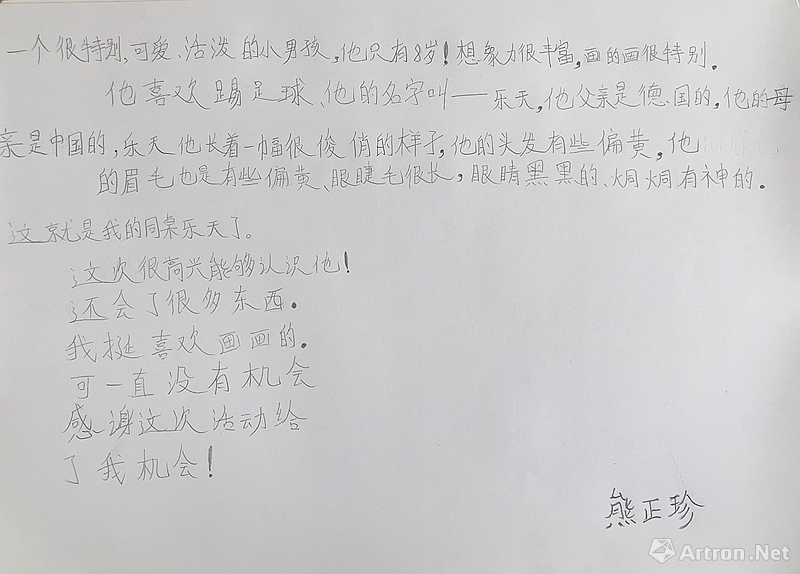 一个很特别,可爱、活泼的小男孩,他只有8岁!想象力很丰富,画的画很特别.
他喜欢踢足球、他的名字叫——乐天,他父亲是德国的,他的母
亲是中国的,乐天他长着一幅很俊俏的样子,他的头发有些偏黄,他
的眉毛也是有些偏黄、眼睫毛很长,眼睛黑黑的、炯炯有神的.
这就是我的同桌乐天了。
这次很高兴能够认识他!
还会了很多东西.
我挺喜欢画画的.
可一直没有机会
感谢这次活动给
了我机会!
熊正珍
Artron.Net